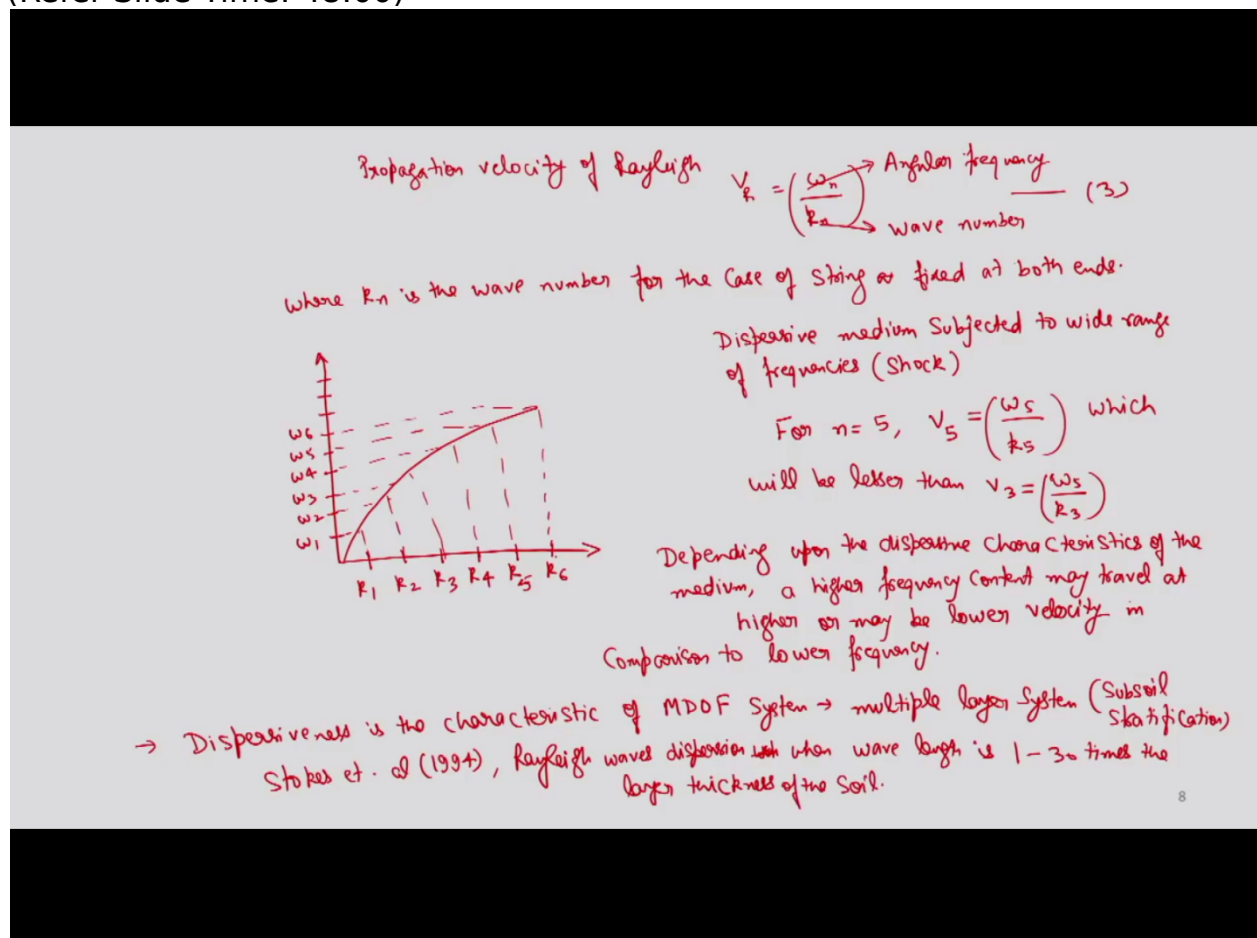 (Refer Slide Time: 48:00)
Propagation velocity of Rayleigh V_R = (ω_n / k_n) → Angular frequency —— (3)
→ wave number
where k_n is the wave number for the case of string as fixed at both ends.
Dispersive medium subjected to wide range
of frequencies (Shock)
For n = 5, V_5 = (ω_5 / k_5) which
will be lesser than V_3 = (ω_3 / k_3)
ω6
ω5
ω4
ω3
ω2
ω1
k1 k2 k3 k4 k5 k6
Depending upon the dispersive characteristics of the
medium, a higher frequency content may travel at
higher or may be lower velocity in
comparison to lower frequency.
→ Dispersiveness is the characteristic of MDOF system → multiple layer system (Subsoil
Stratification)
Stokes et. al (1994), Rayleigh waves dispersion when wave length is 1 – 30 times the
layer thickness of the soil.
8